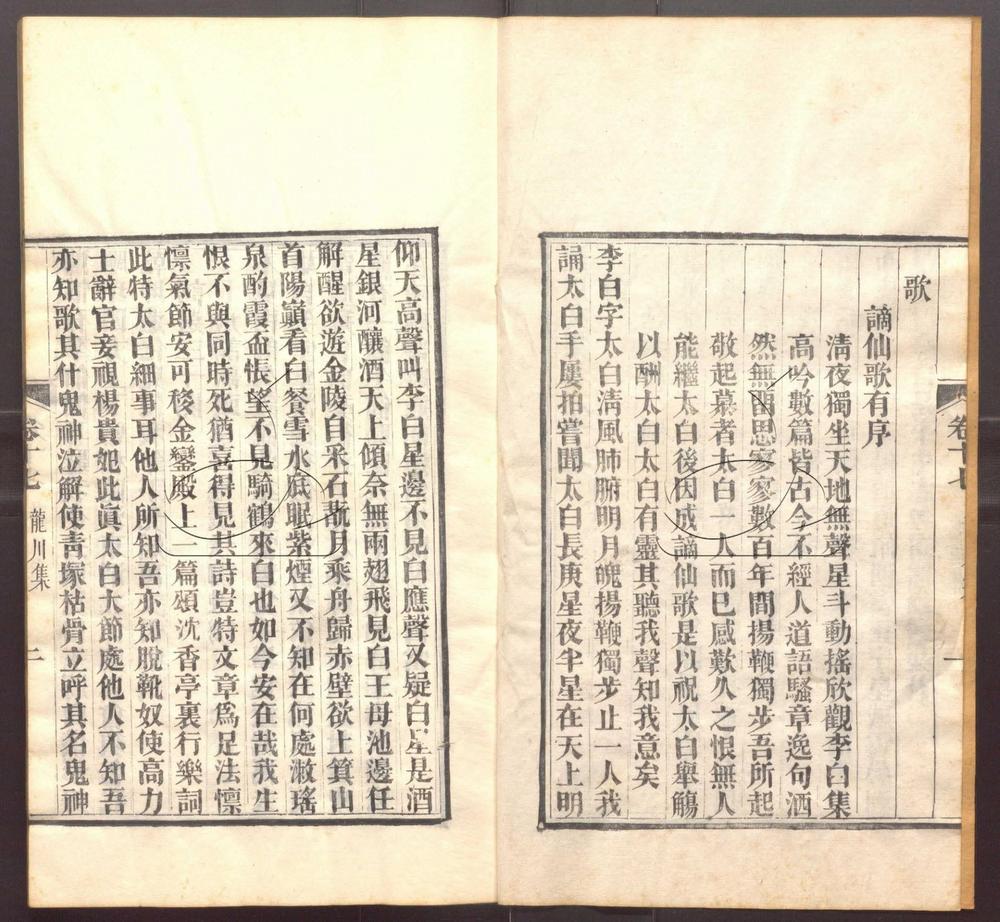 歌
謫仙歌有序
淸夜獨坐天地無聲星斗動搖欣觀李白集
高吟數篇皆古今不經人道語騷章逸句洒
然無留思寥寥數百年間揚鞭獨步吾所起
敬起慕者太白一人而已感歎久之恨無人
能繼太白後因成謫仙歌是以祝太白舉觴
以酬太白太白有靈其聽我聲知我意矣
李白字太白淸風肺腑明月魄揚鞭獨步止一人我
誦太白手屢拍嘗聞太白長庚星夜半星在天上明
仰天高聲叫李白星邊不見白應聲又疑白星是酒
星銀河釀酒天上傾奈無兩翅飛見白王母池邊任
解酲欲遊金陵自采石翫月乘舟歸赤壁欲上箕山
首陽巓看白餐雪水底眠紫煙又不知在何處漱瑤
泉酌霞盃悵望不見騎鶴來白也如今安在哉我生
恨不與同時死猶喜得見其詩豈特文章爲足法懍
懍氣節安可移金鑾殿上一篇頌沈香亭裏行樂詞
此特太白細事耳他人所知吾亦知脫靴奴使高力
士辭官妾視楊貴妃此眞太白大節處他人不知吾
亦知歌其什鬼神泣解使靑塚枯骨立呼其名鬼神
卷十七
一
卷十七
龍川集
二